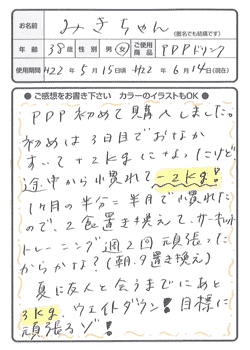 お名前 みきちゃん (匿名でも結構です)
年齢 38歳 性別 男・女 ご使用商品 PDPドリンク
使用期間 H22年5月15日頃 H22年6月14日(現在)
●ご感想をお書き下さい カラーのイラストもOK●
PDP初めて購入しました。
初めは3日目でおなか
すいて+2kgになったけど、
途中から慣れて-2kg!
1ヶ月の半分=半月で慣れた
ので、2食置き換えて、サーキット
トレーニング週2回頑張った
からかな?(朝、夕置き換え)
夏に友人と会うまでにあと
3kg、ウェイトダウン!目標に
頑張るゾ!